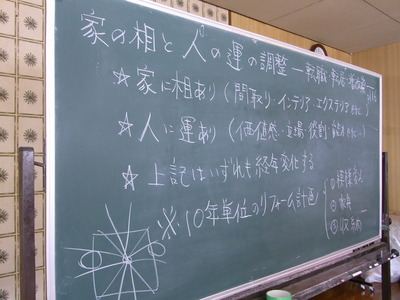 家の相と人の運の調整 ― 転職・転居・
☆ 家に相あり (間取り・インテリア・エクステリア
☆ 人に運あり (価値感・立場・役割・
☆ 上記はいずれも経年変化する
※ 10年単位のリフォーム計画
①
②
③